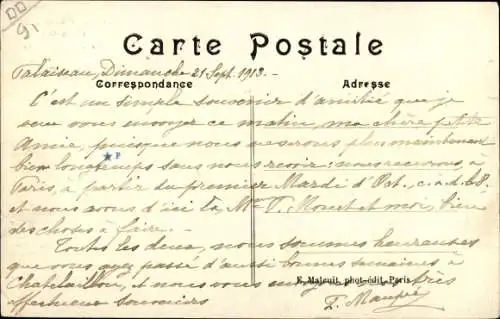 91
Carte Postale
Palaiseau, Dimanche 21 Sept. 1913.-
Correspondance Adresse
C'est un simple souvenir d'amitié que je
veux vous envoyer ce matin, ma chère petite
Amie, puisque nous ne serons plus maintenant
bien longtemps sans nous revoir: nous recevons, à
Paris, à partir du premier Mardi d'Oct., c.à.d. le 8.
et nous avons d'ici là, Me et moi, bien
des choses à faire.-
Toutes les deux, nous sommes heureuses
que vous ayez passé d'aussi bonnes semaines à
Chatelaillon, et nous vous très
affectueux souvenirs
E. Maleuit, phot-édit. Paris